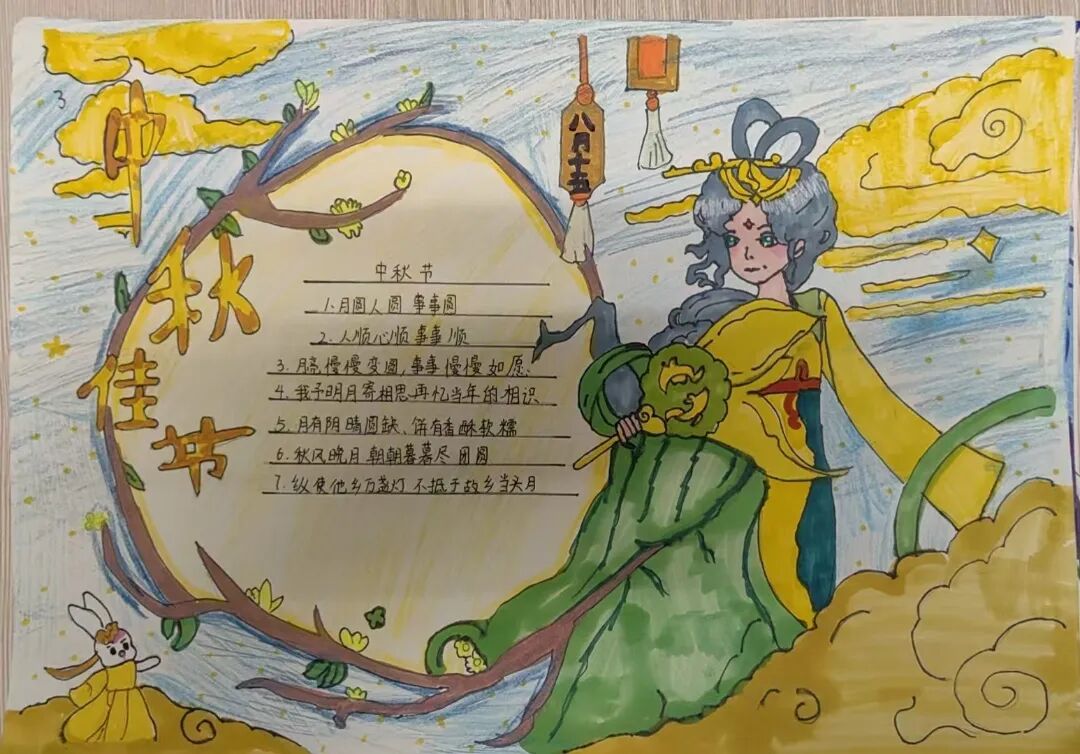 3
中
秋
佳
节
八月十五
中秋节
1.月圆人圆事事圆
2.人顺心顺事事顺
3.月亮慢慢变圆,事事慢慢如愿.
4.我予明月寄相思再忆当年的相识
5.月有阴晴圆缺、饼有香酥软糯
6.秋风晚月朝朝暮暮尽团圆
7.纵使他乡万盏灯不抵于故乡当头月